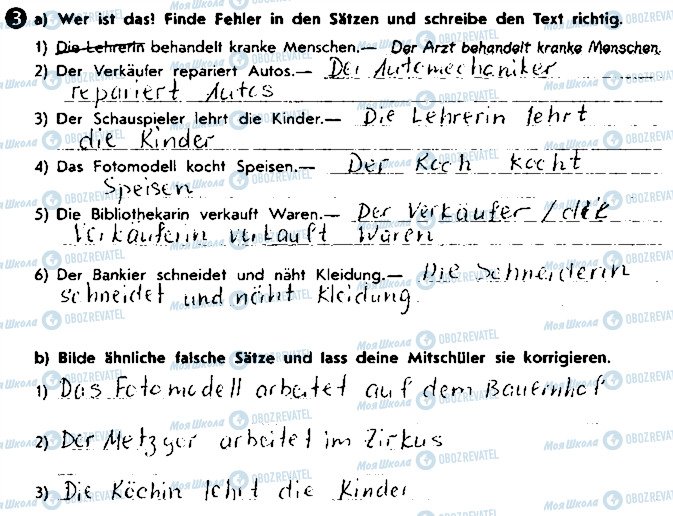 3 a) Wer ist das! Finde Fehler in den Sätzen und schreibe den Text richtig.
1) Die Lehrerin behandelt kranke Menschen.— Der Arzt behandelt kranke Menschen.
2) Der Verkäufer repariert Autos.— Der Automechaniker
repariert Autos
3) Der Schauspieler lehrt die Kinder.— Die Lehrerin lehrt
die Kinder
4) Das Fotomodell kocht Speisen.— Der Koch kocht
Speisen
5) Die Bibliothekarin verkauft Waren.— Der Verkäufer / die
Verkäuferin verkauft Waren
6) Der Bankier schneidet und näht Kleidung.— Die Schneiderin
schneidet und näht Kleidung
b) Bilde ähnliche falsche Sätze und lass deine Mitschüler sie korrigieren.
1) Das Fotomodell arbeitet auf dem Bauernhof
2) Der Metzger arbeitet im Zirkus
3) Die Köchin lehrt die Kinder